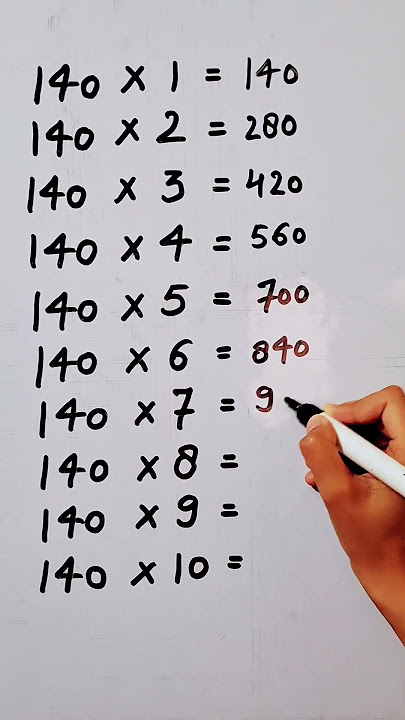 140 × 1 = 140
140 × 2 = 280
140 × 3 = 420
140 × 4 = 560
140 × 5 = 700
140 × 6 = 840
140 × 7 = 9
140 × 8 =
140 × 9 =
140 × 10 =